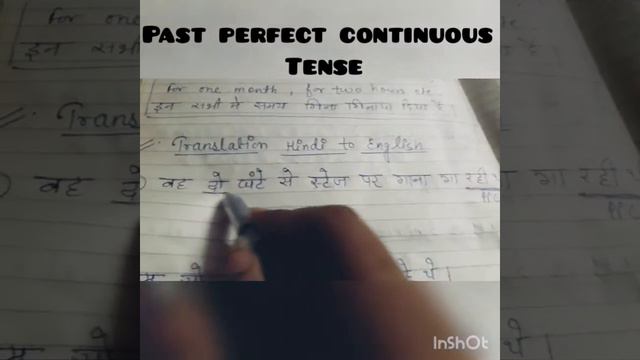 PAST PERFECT CONTINUOUS
TENSE
For one month, for two hours etc
इन सभी में समय गिना गिनाया दिया है।
Translation Hindi to English
वह दो घंटे से स्टेज पर गाना गा रही
थे।
InShOt